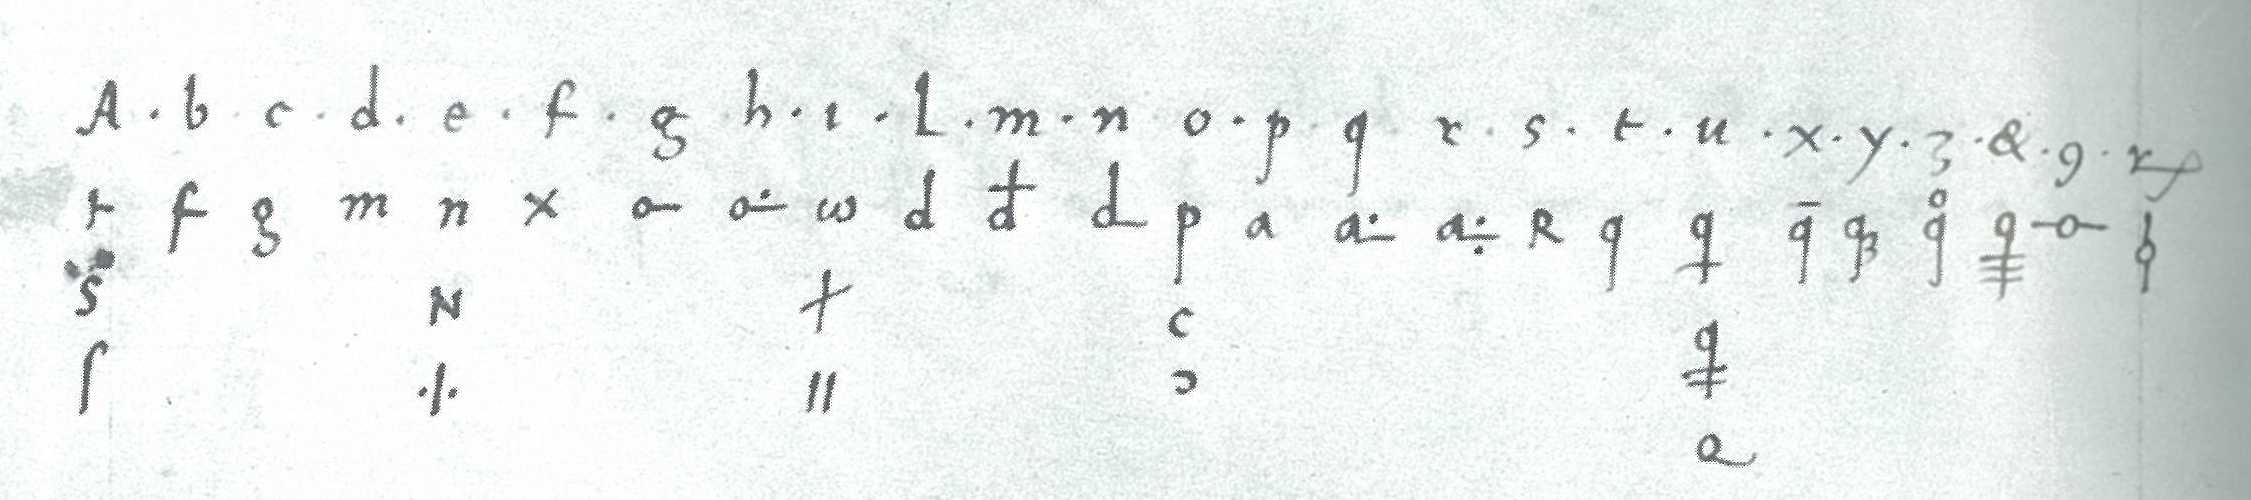 A · b · c · d · e · f · g · h · ı · L · m · n o · p · q · r · s · t · u · x · y · ʒ · & · 9 ·
t f g m n x o- w d đ d p a a R q q q̄ qꝫ q̊ q -o-
s N + c q
ſ ·/· // ɔ a